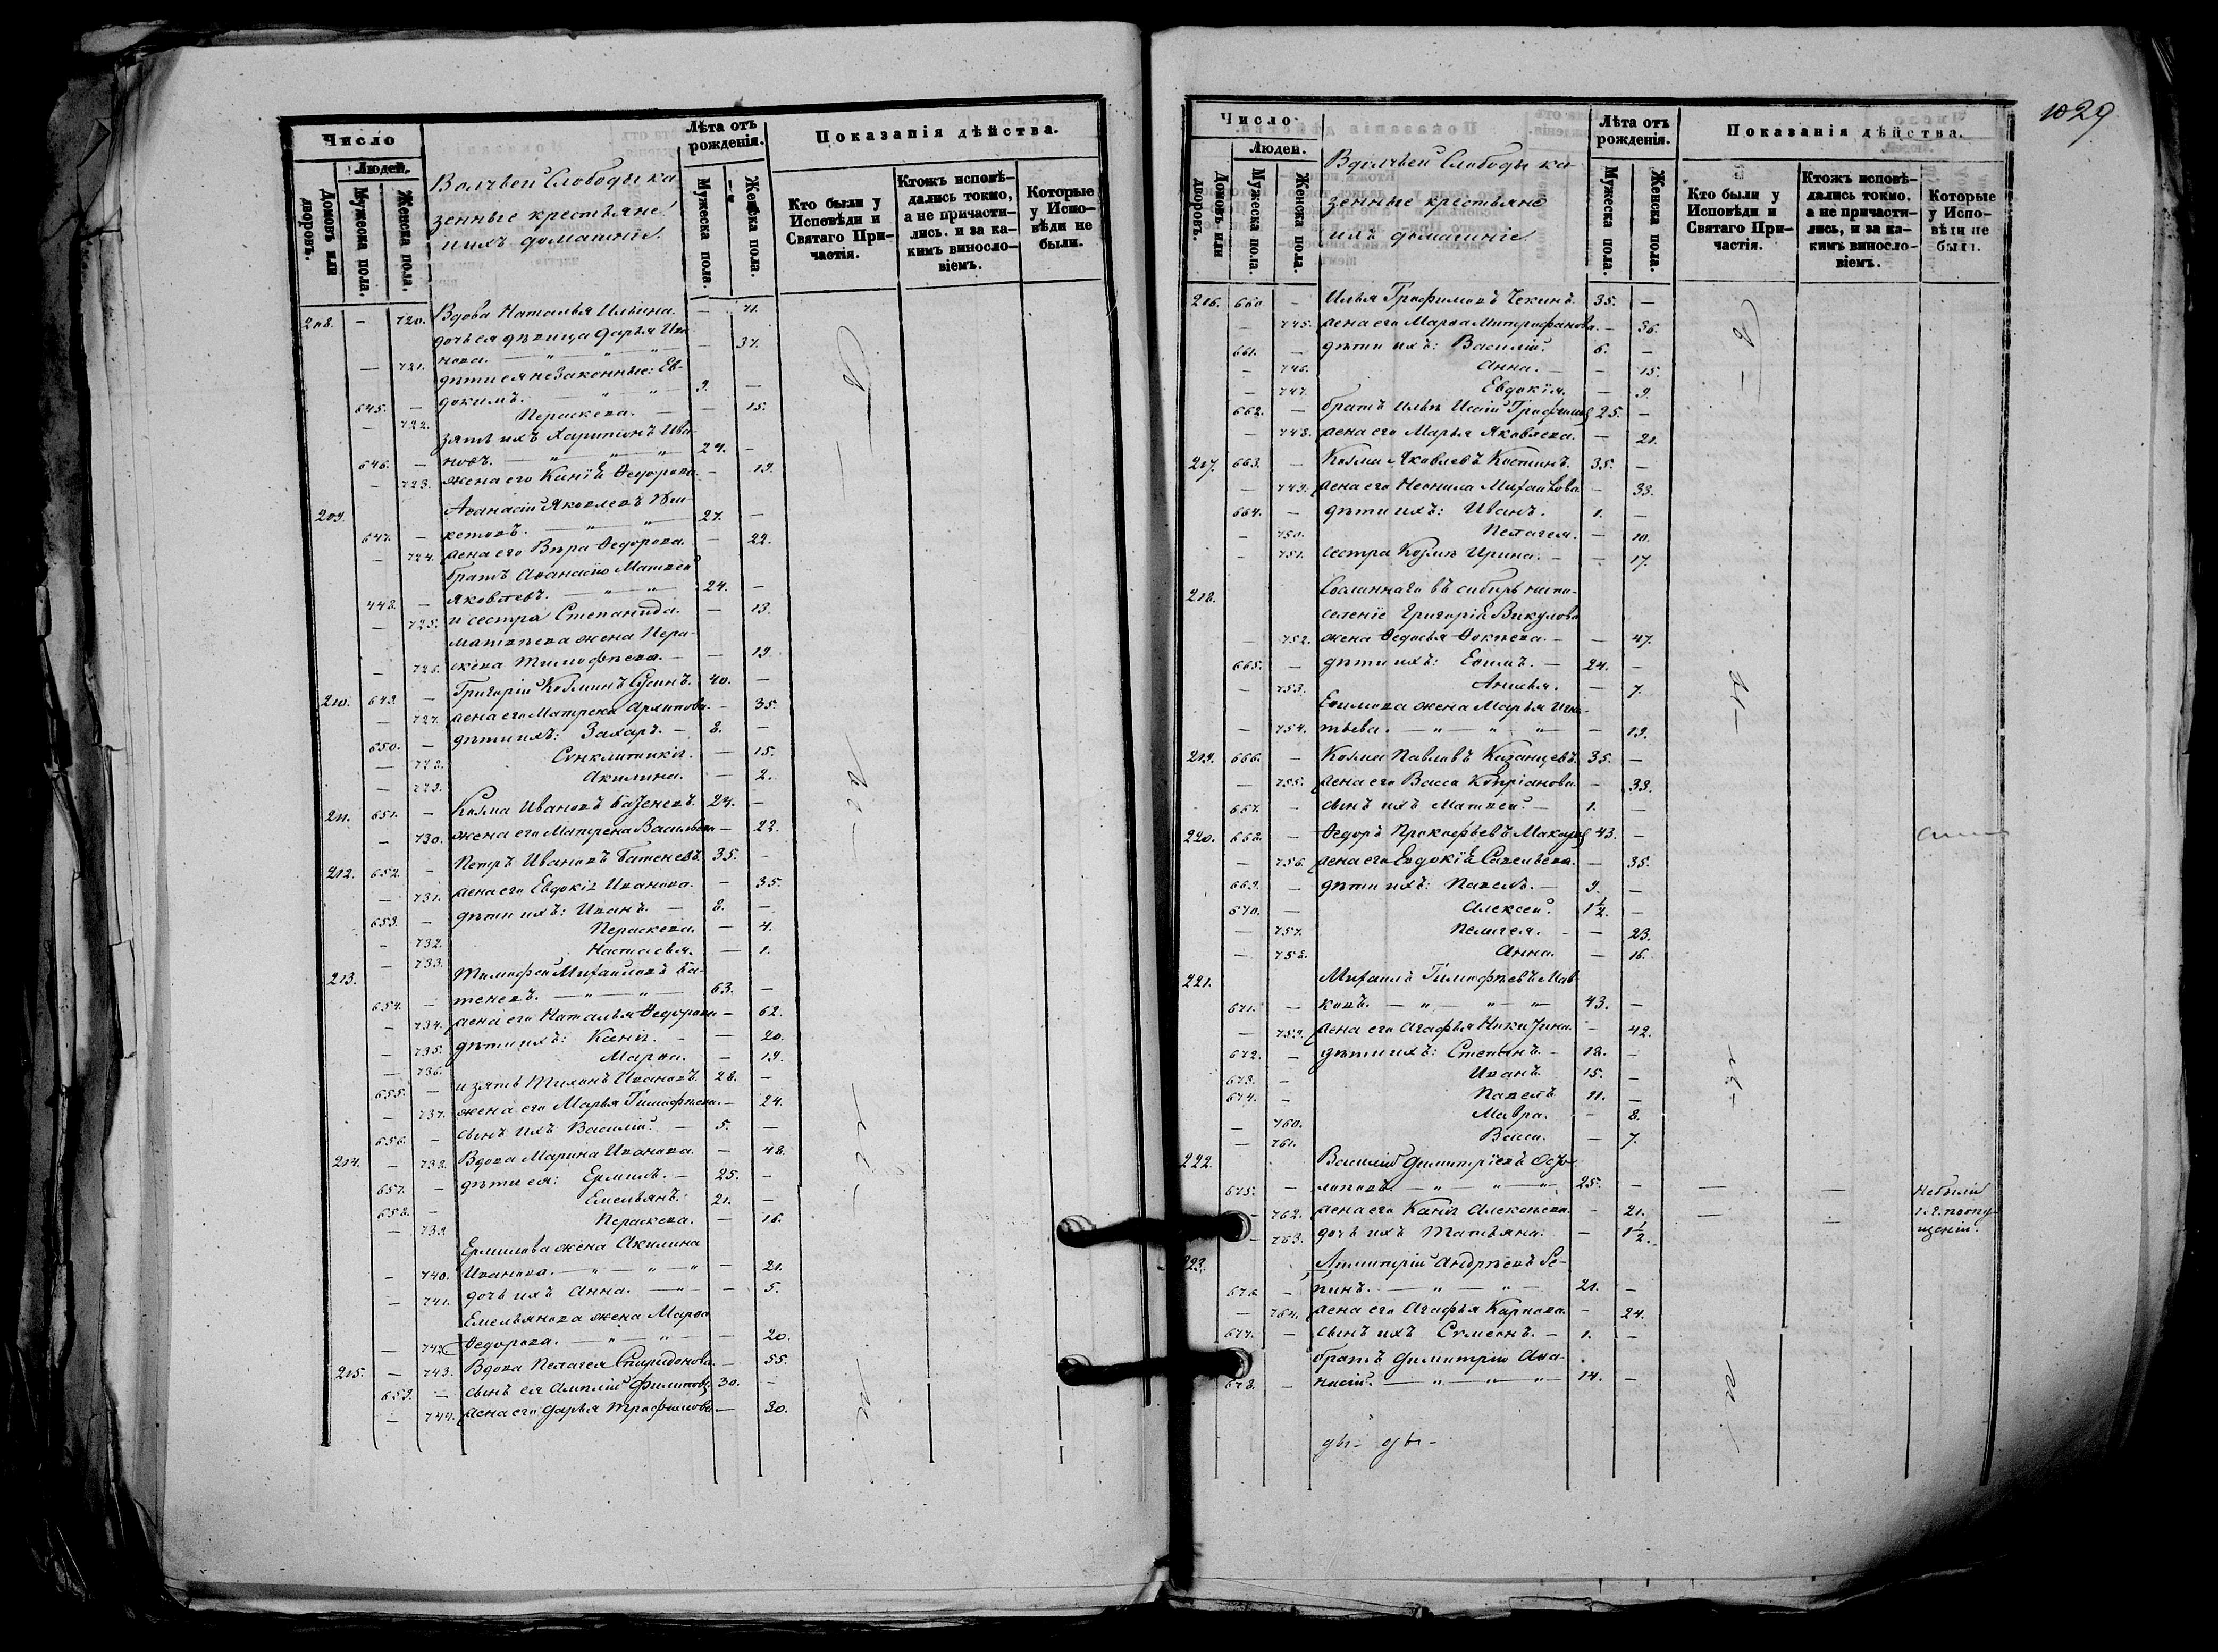 Число
Людей.
Домовъ или дворовъ.
Мужеска пола.
Женска пола.
Волчьей Слободы ка
зенные крестьяне
ихъ домашніе.
Лѣта отъ рожденія.
Мужеска пола.
Женска пола.
Показанія дѣйства.
Кто были у Исповѣди и Святаго При-частія.
Ктожъ исповѣ-дались токмо, а не причасти-лись. и за ка-кимъ виносло-віемъ.
Которые у Испо-вѣди не были.
208. — 720. Вдова Наталья Ильина. — 71.
дочь ея дѣвица Дарья Ива
— 721. нова. — " — " — 37.
дѣти ея незаконные: Ев-
645. — докимъ. — " — " 9. —
— 722. Пераскева. — — 15.
зять ихъ Харитонъ Ива-
646. — новъ. — " — " — " 24. —
— 723. жена его Федорова. — 19.
209. Аѳанасій Яковлевъ
647. — — " — " 27. —
— 724. жена его Вѣра Ѳедорова. — 22.
братъ Аѳанасію Матвей
448. — Яковлевъ. — " — " 24. —
— 725. и сестра Степанида. — 13.
Матвѣева жена Пера-
— 726. скева Тимофѣева. — — 19.
210. 649. — Григорій Козминъ 40. —
— 727. жена его Матрена Архипова. — 35.
650. — дѣти ихъ: Захаръ. — 8. —
— 728. Сѵнклитикія. — 15.
— 729. Акилина. — 2.
211. 651. — Козма Ивановъ 24. —
— 730. жена его Матрена Васильева — 22.
212. 652. — Петръ Ивановъ Батеневъ. 35. —
— 731. жена его Евдокія Иванова. — 35.
653. — дѣти ихъ: Иванъ. — 8. —
— 732. Пераскева. — 4.
— 733. Настасья. — 1.
213. Тимофей Михайловъ Ба-
654. — теневъ. — " — " — 63. —
— 734. жена его Наталья Ѳедорова — 62.
— 735. дѣти ихъ: — — 20.
— 736. Марѳа. — 19.
655. — и зять Тихонъ Ивановъ 28. —
— 737. жена его Марья Тимофѣева. — 24.
656. — сынъ ихъ Василій. — 5. —
214. — 738. Вдова Марина Иванова. — 48.
657. — дѣти ея: Ермилъ. — 25. —
658. — Емельянъ. 21. —
— 739. Пераскева. — 16.
Ермилова жена Акилина
— 740. Иванова. — " — " — " — 21.
— 741. дочь ихъ Анна. — " — 5.
Емельянова жена Марѳа
— 742. Ѳедорова. — " — " — — 20.
215. — 743. Вдова Пелагея Спиридонова. — 55.
659. — сынъ ея Амплій Филиповъ 30. —
— 744. жена его Дарья Трофимова — 30.
1029
Число
Людей.
Домовъ или дворовъ.
Мужеска пола.
Женска пола.
Волчьей Слободы ка-
зенные крестьяне
ихъ домашніе
Лѣта отъ рожденія.
Мужеска пола.
Женска пола.
Показанія дѣйства.
Кто были у Исповѣди и Святаго При-частія.
Ктожъ исповѣ-дались токмо, а не причасти-лись, и за ка-кимъ виносло-віемъ.
Которые у Испо-вѣди не были.
216. 660 — Илья Трофимовъ Чекинъ 35. —
— 745. жена его Марѳа Митрофанова. — 36.
661. — дѣти ихъ: Василій. 6. —
— 746. Анна. — — 15.
— 747. Евдокія. — 9.
662. — братъ Ильи 25. —
— 748. жена его Марья Яковлева. — 21.
217. 663. — Козма Яковлевъ Костинъ. 35. —
— 749. жена его Неонила Михайлова — 33.
664. — дѣти ихъ: Иванъ. 1. —
— 750. Пелагея. — 10.
— 751. сестра Козмы Ирина. — — 17.
218. Сосланнаго въ сибирь на по-
селеніе Григорія Викулова
— 752. жена Ѳедосья — — 47.
665. — дѣти ихъ: Еѳимъ. — 24. —
— 753. Анисья. — 7.
Еѳимова жена Марья Игна-
— 754. тьева. — " — " — " — 19.
219. 666. — Козма Павловъ Казанцевъ. 35. —
— 755. жена его Васса Кипріанова. — 33.
667. — сынъ ихъ Матвей. — 1. —
220. 668. — Ѳедоръ Прокофьевъ 43. —
— 756. жена его Евдокія Савельева. — 35.
669. — дѣти ихъ: Павелъ. — 9. —
670. — Алексей. 1½. —
— 757. Пелагея. — — 23.
— 758. Анна. — 16.
221. Михаилъ Тимофѣевъ Мав-
671. — ковъ. — " — " — " — 43. —
— 759. жена его Агафья — 42.
672. — дѣти ихъ: Степанъ. — 18. —
673. — Иванъ 15. —
674. — Павелъ 11. —
— 760. Мавра. — 8.
— 761. Васса. — 7.
222. Василій Димитріевъ
675. — — " — " — " — 25. — — — Небыли
— 762. жена его Алексѣева. — 21. — — по опу-
— 763. дочь ихъ Татьяна. — 1½. щенію.
223. Димитрій Андрѣевъ Ре-
676. — пинъ. — " — " — 21. —
— 764. жена его Агафья Карпова. — 24.
677. — сынъ ихъ Сѵмеонъ. — 1. —
братъ Димитрію Аѳа-
678. — насій. — " — " — " — 14. —